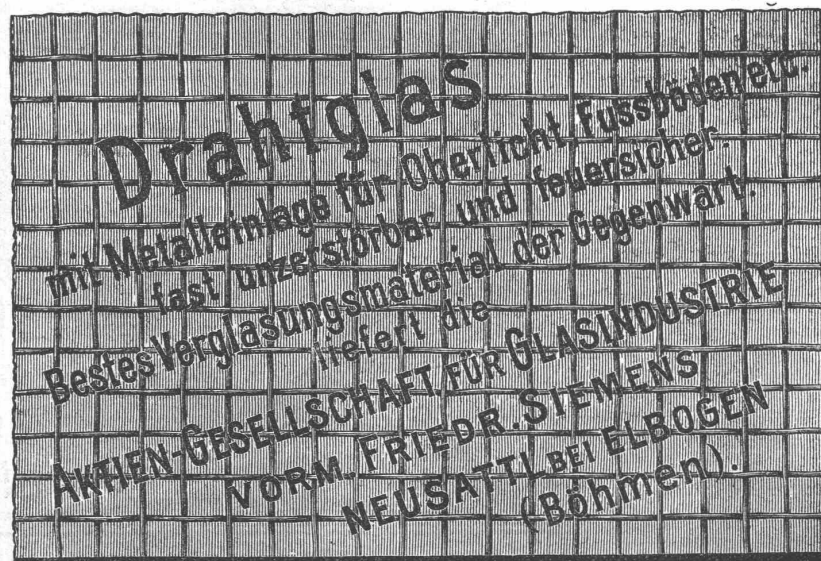 Drahtglas
mit Metalleinlage für Oberlicht, Fussböden etc.
fast unzerstörbar und feuersicher.
Bestes Verglasungsmaterial der Gegenwart.
liefert die
AKTIEN-GESELLSCHAFT FÜR GLASINDUSTRIE
VORM. FRIEDR. SIEMENS
NEUSATTL BEI ELBOGEN
(Böhmen).